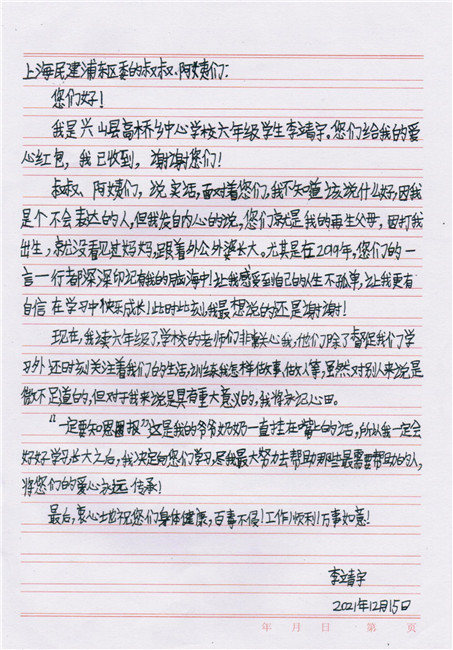 上海民建浦东区委的叔叔、阿姨们：
您们好！
我是兴山县高桥乡中心学校六年级学生李靖宇。您们给我的爱
心红包，我已收到，谢谢您们！
叔叔、阿姨们，说实话，面对着您们，我不知道该说什么好，因我
是个不会表达的人，但我发自内心的说，您们就是我的再生父母，因打我
出生，就没看见过妈妈，跟着外公外婆长大。尤其是在2019年，您们的一
言一行都深深印记有我的脑海中！让我感受到自己的人生不孤单，让我更有
自信在学习中快乐成长！此时此刻，我最想说的还是谢谢！
现在，我读六年级了，学校的老师们非常关心我，他们除了督促我们学
习外还时刻关注着我们的生活，训练我怎样做事、做人等，虽然对别人来说是
微不足道的，但对于我来说是具有重大意义的，我将永记心田。
“一定要知恩图报”，这是我的爷爷奶奶一直挂在嘴上的话，所以我一定会
好好学习，长大之后，我决定向您们学习，尽我最大努力去帮助那些最需要帮助的人，
将您们的爱心永远传承！
最后，衷心地祝您们身体健康，百事不侵！工作顺利！万事如意！
李靖宇
2021年12月15日
年 月 日 第 页